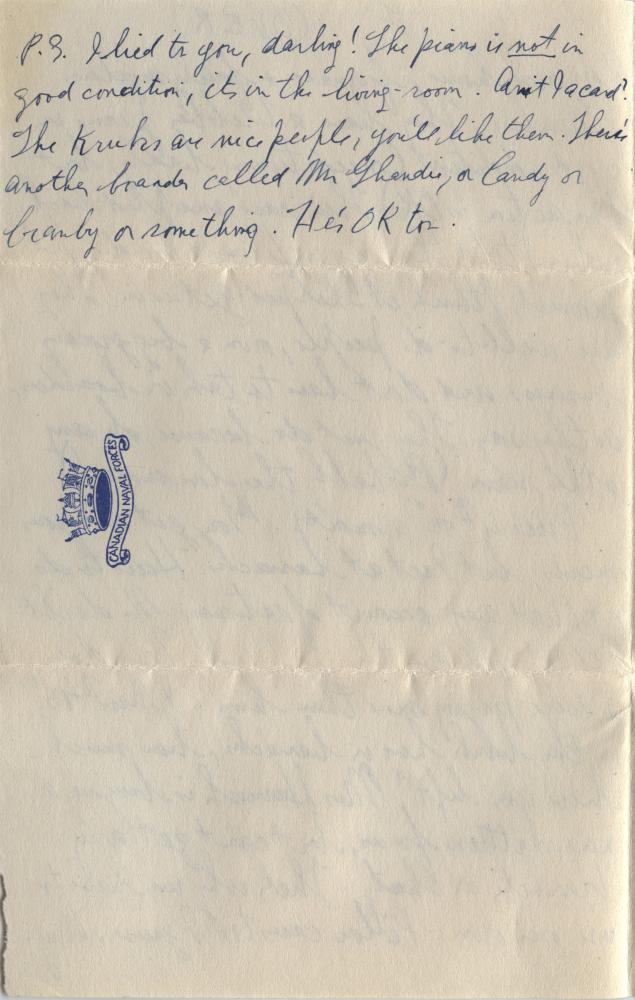 P.S. I lied to you, darling! The piano is not in
good condition, its in the living-room. Ain't I a card?
The Krubs are nice people, you'll like them. There's
another boarder called Mr Ghandie, or Candy or
branby or something. He's OK too.
CANADIAN NAVAL FORCES